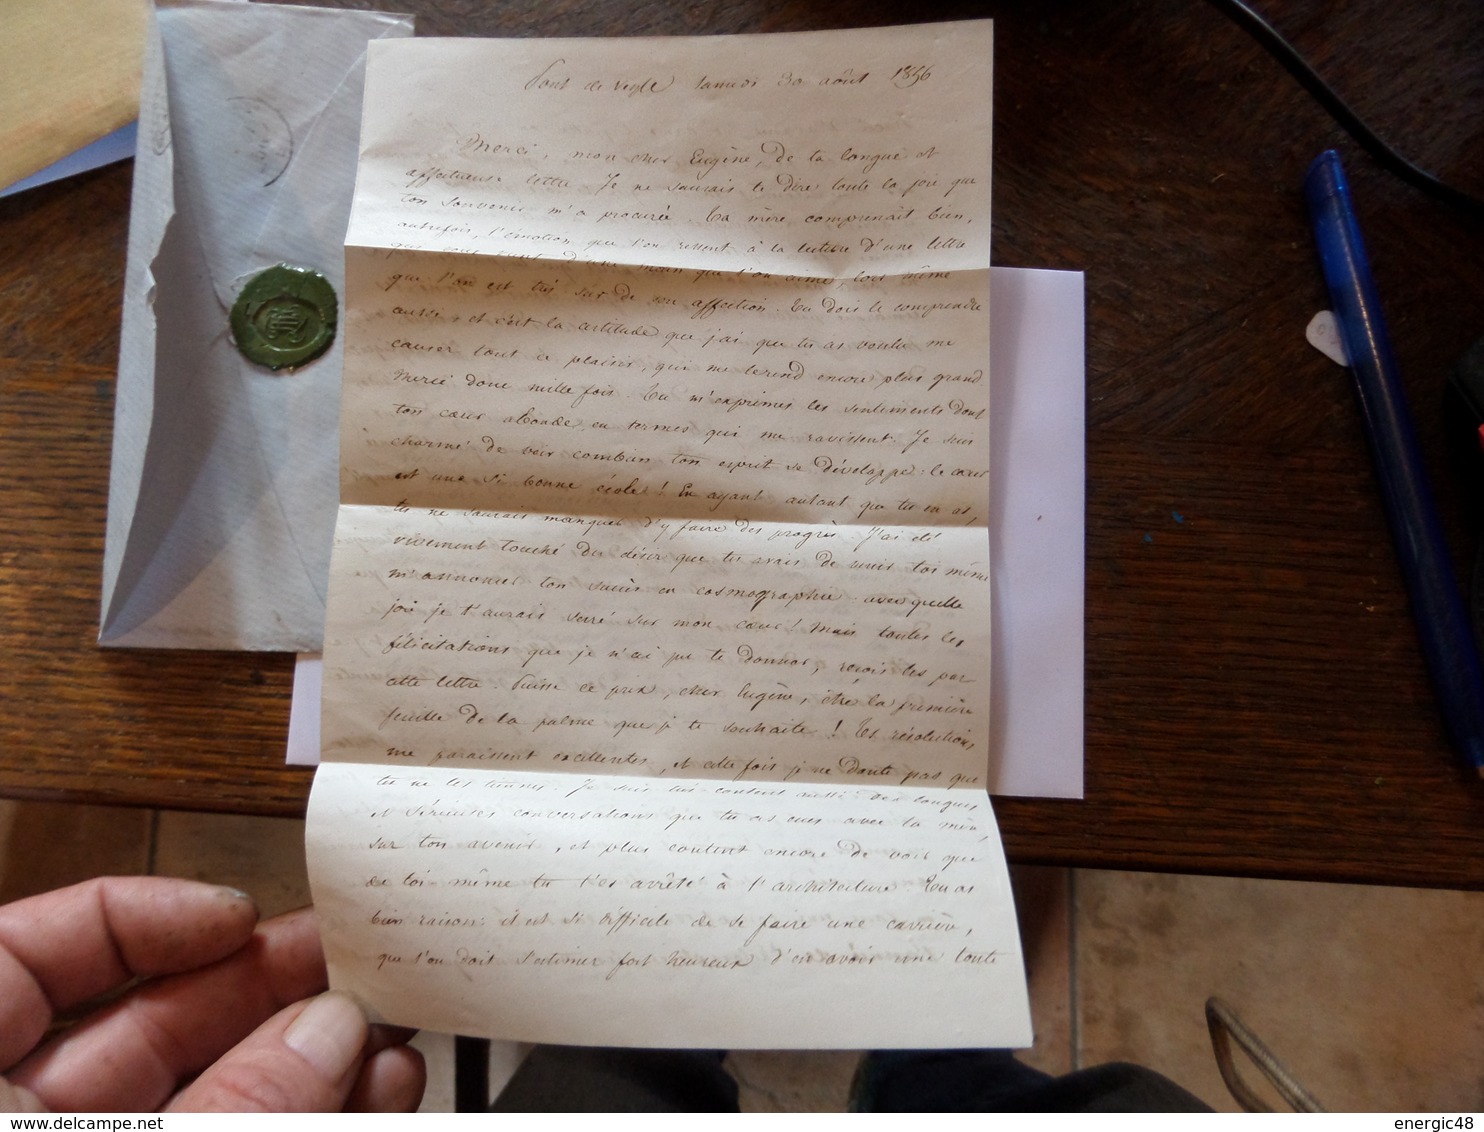 Pont de Veyle Samedi 30 août 1856
Merci, mon cher Eugène, de ta longue et
affectueuse lettre. Je ne saurais te dire toute la joie que
ton souvenir m'a procurée. Ta mère comprenait bien,
autrefois, l'émotion que l'on ressent à la lecture d'une lettre
que d'une main que l'on aime, lors même
que l'on est très sûr de son affection. Tu dois le comprendre
aussi, et c'est la certitude que j'ai que tu as voulu me
causer tout ce plaisir, qui me le rend encore plus grand.
Merci donc mille fois. Tu m'exprimes les sentiments dont
ton cœur abonde, en termes qui me ravissent. Je suis
charmé de voir combien ton esprit se développe: le cœur
est une si bonne école! En ayant autant que tu en as,
tu ne saurais manquer d'y faire des progrès. J'ai été
vivement touché du désir que tu avais de venir toi même
m'annoncer ton succès en cosmographie: avec quelle
joie je t'aurais serré sur mon cœur! Mais toutes les
félicitations que je n'ai pu te donner, reçois les par
cette lettre. Puisse ce prix, cher Eugène, être la première
feuille de la palme que je te souhaite! Tes résolutions
me paraissent excellentes, et cette fois je ne doute pas que
tu ne les tiennes. Je suis très content aussi des longues
et sérieuses conversations que tu as eues avec ta mère,
sur ton avenir, et plus content encore de voir que
de toi-même tu t'es arrêté à l'architecture. Tu as
bien raison: il est si difficile de se faire une carrière,
que l'on doit s'estimer fort heureux d'en avoir une toute
energic48